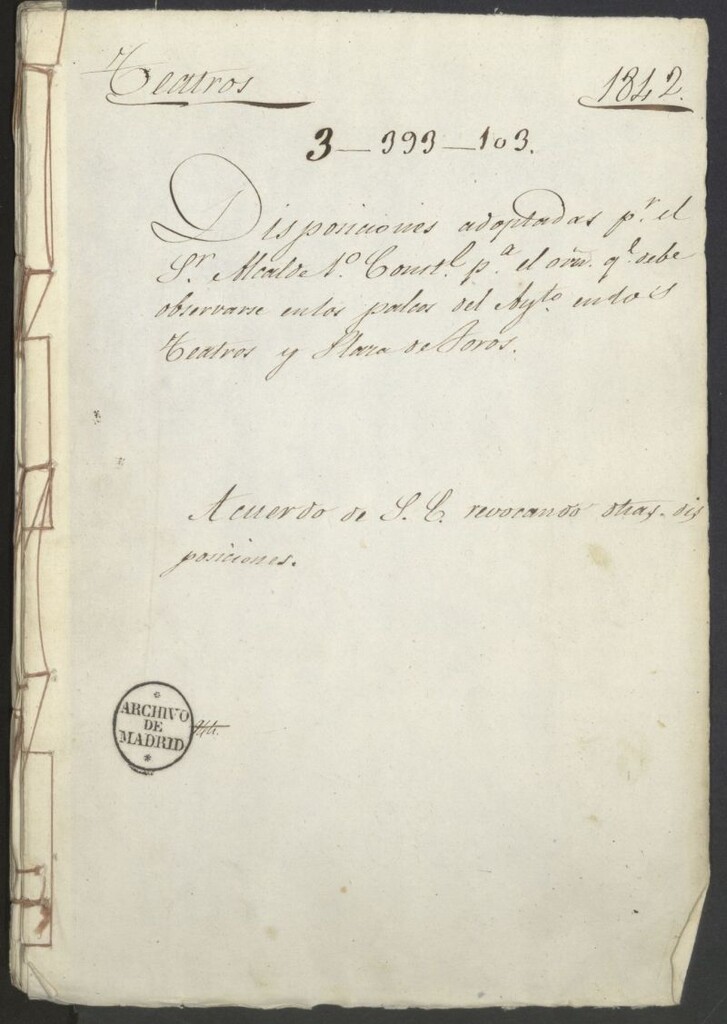 Teatros
1842.
3—393—103.
Disposiciones adoptadas pr. el
Sr. Alcalde 1o. Constl. pa. el orn. ql. debe
observarse en los palcos del Aylo. en los
Teatros y Plaza de Toros.
Acuerdo de S. E. revocando otras dis
posiciones.
ARCHIVO
DE
MADRID